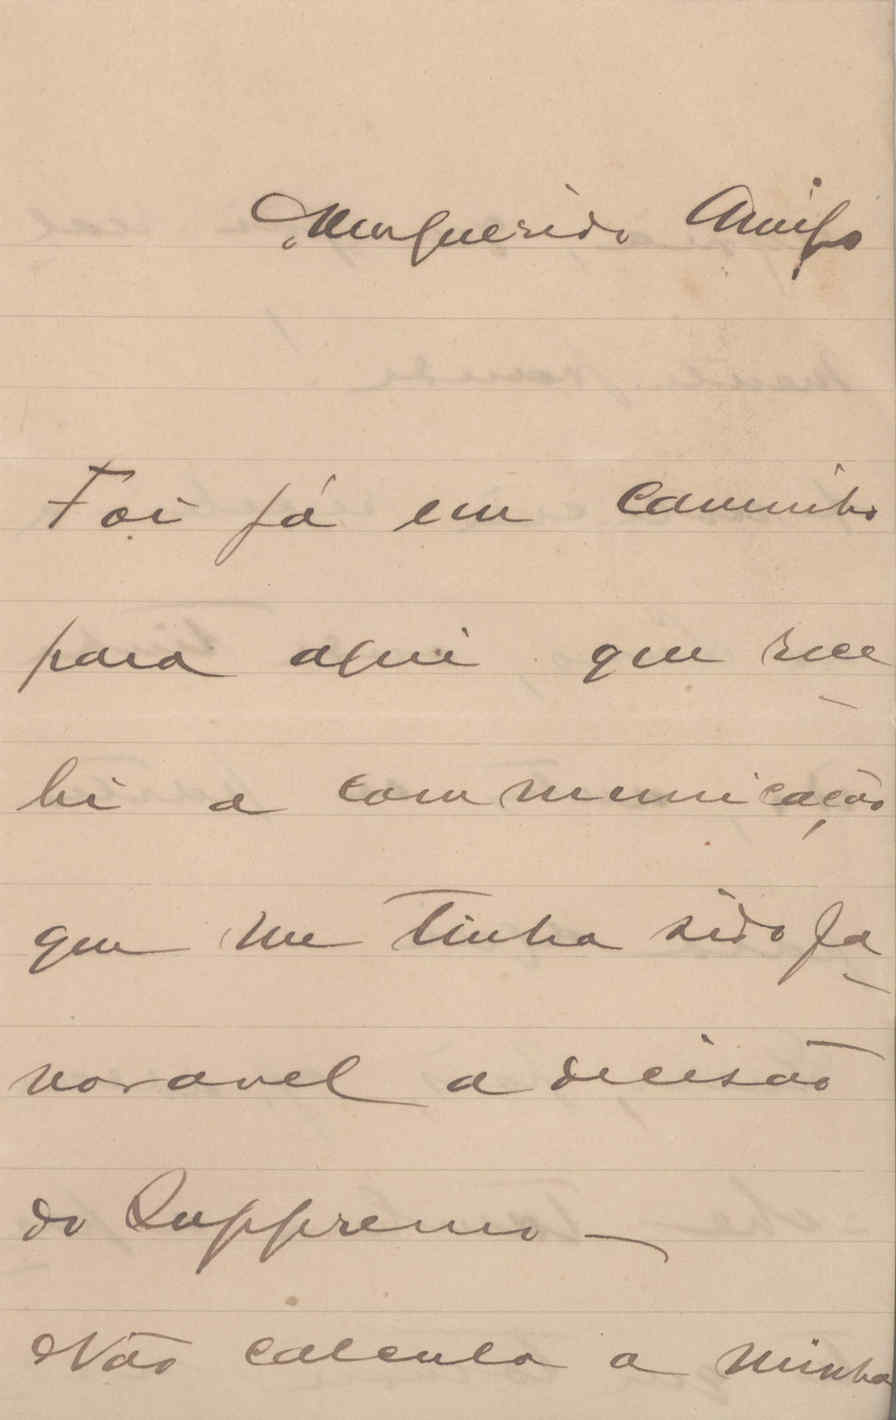 Meu querido Amigo
Foi já em caminho
para aqui que rece
bi a communicação
que me tinha sido fa
voravel a decisão
do Suppremo —
Não calcula a minha